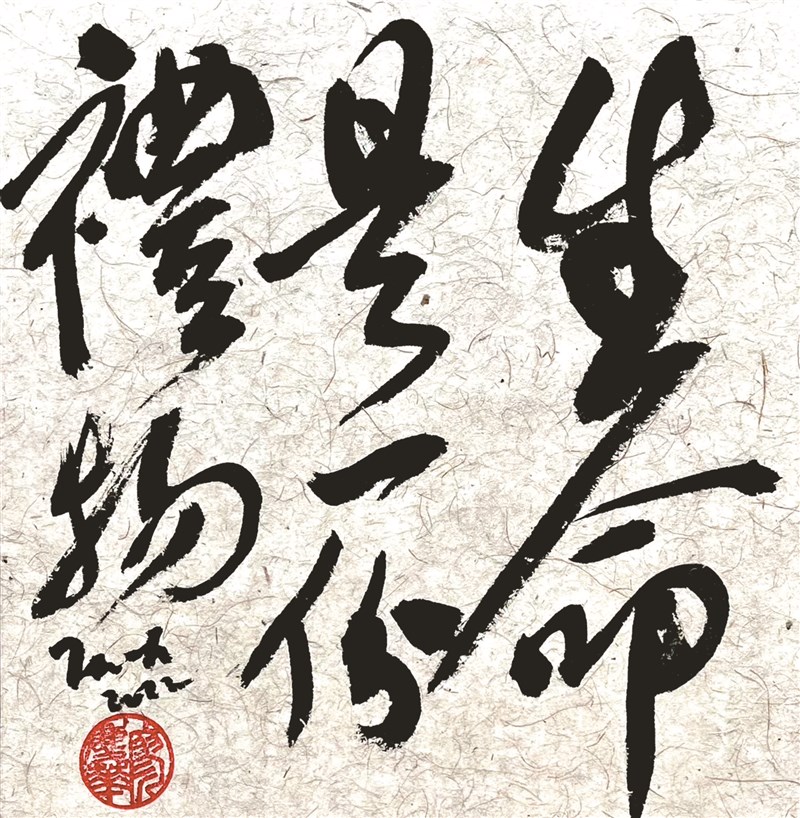 生命
是一份
禮物
2022